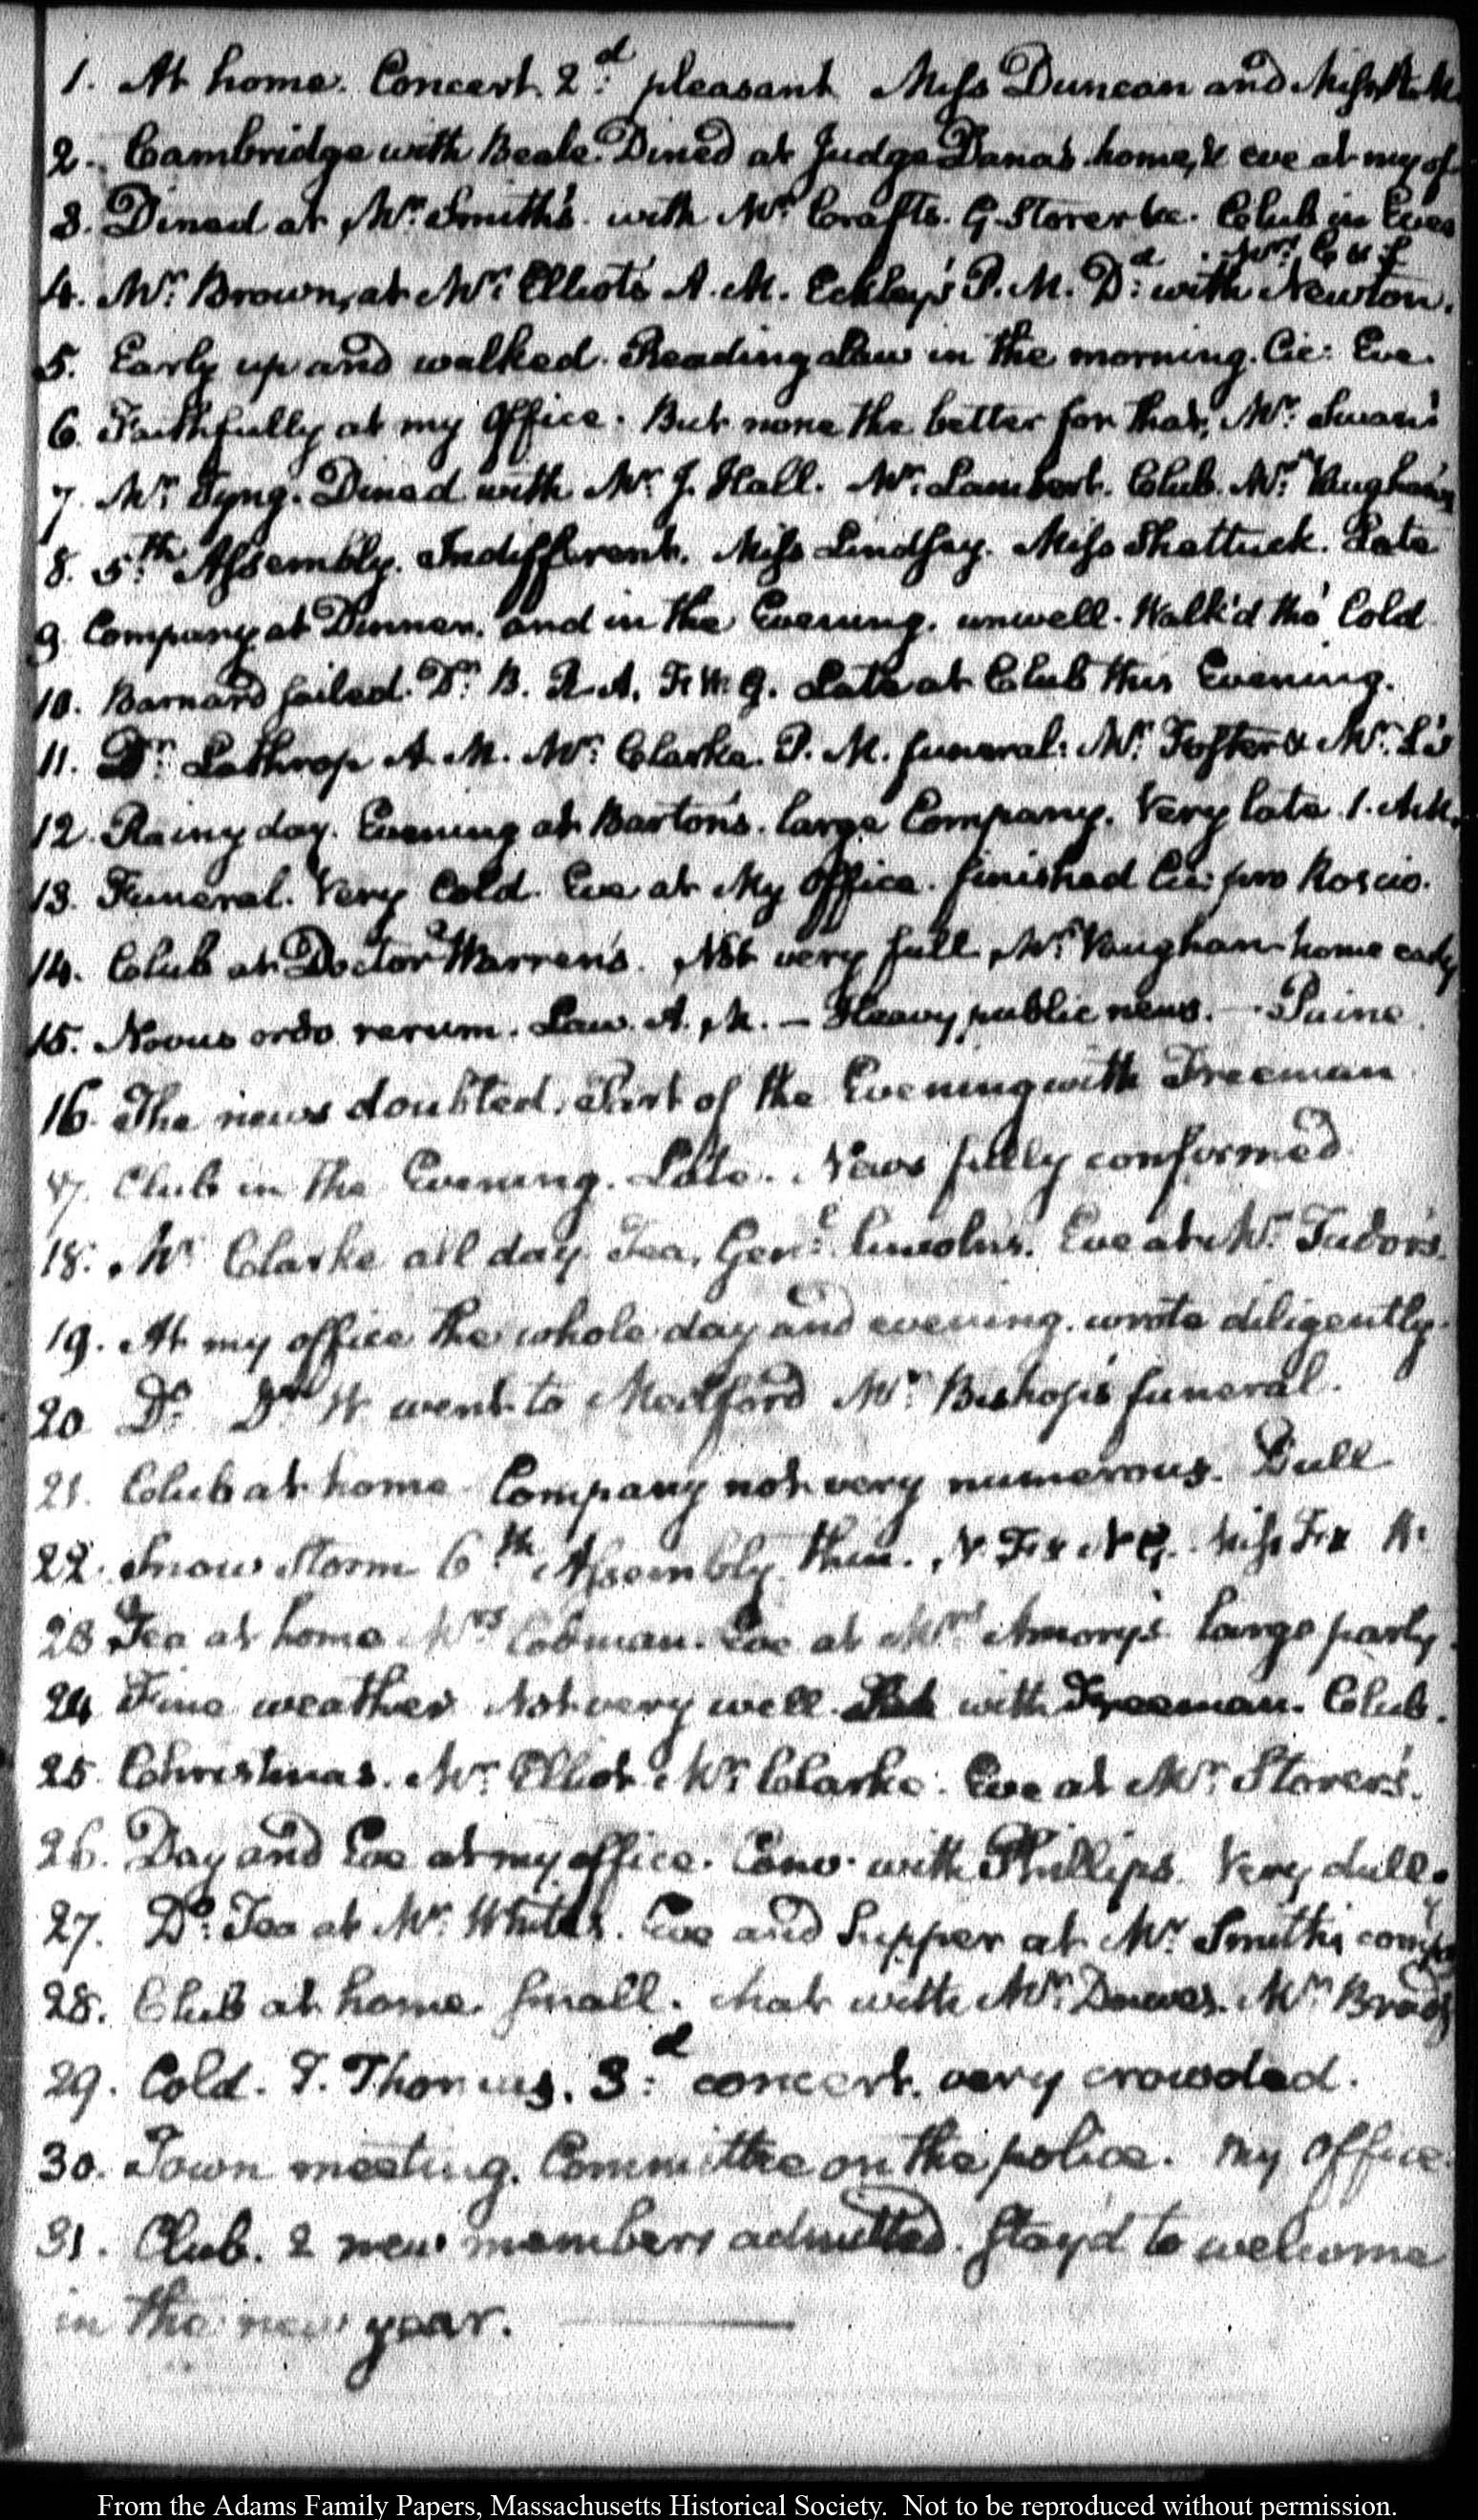 1. At home. Concert. 2.d pleasant Miss Duncan and Miss
2. Cambridge with Beale. Dined at Judge Dana's home, & eve at my of
3. Dined at Mr. Smith's with Mr. Crafts. G. Storer &c. Club in Eveg
4. Mr. Brown, at Mr. Elliot's A.M. Eckley's P.M. Dd: with Newton.
5. Early up and walked. Reading Law in the morning. Cic: Eve.
6. Faithfully at my Office. But none the better for that. Mr. Swan's
7. Mr. Tyng. Dined with Mr. J. Hall. Mr. Lambert. Club. Mr. Vaughan's
8. 5.th Assembly. Indifferent. Miss Lindsey. Miss Shattuck. Late
9. Company at Dinner. and in the Evening. unwell. Walk'd tho' Cold
10. Barnard sailed. Dr. B. R. A. F. W. G. Late at Club this Evening.
11. Dr. Lathrop A.M. Mr. Clarke. P.M. funeral: Mr. Foster & Mr. L's
12. Rainy day. Evening at Barton's. large Company. Very late 1. A.M.
13. Funeral. Very Cold. Eve at My Office. finished Cic: pro Roscio.
14. Club at Doctor Warren's. Not very full Mr. Vaughan home early
15. Novus ordo rerum. Law. A.M. — Heavy public news. — Paine
16. The news doubted. Part of the Evening with Freeman
17. Club in the Evening. Late. News fully confirmed
18. Mr. Clarke all day. Tea, Gen:l Lincoln's. Eve at Mr. Tudor's.
19. At my office the whole day and evening. wrote diligently.
20 Do. Dr W went to Medford Mr. Bishop's funeral.
21. Club at home Company not very numerous. Dull
22. Snow Storm 6th Assembly. thin. N. F & N G. Miss F &
23 Tea at home Mrs Cobman. Eve at Mrs Amory's large party.
24 Fine weather Not very well. with Freeman. Club.
25 Christmas. Mr. Elliot Mr. Clarke. Eve at Mr. Storer's.
26. Day and Eve at my office. Conv. with Phillips. Very dull.
27. Do. Tea at Mr. White's. Eve and Supper at Mr. Smith's compy
28. Club at home. small. chat with Mr. Dawes. Mr.
29. Cold. T. Thomas. 3:d concert. very crowded.
30. Town meeting. Committee on the police. My office.
31. Club. 2 new members admitted. Stay'd to welcome
in the new year.
From the Adams Family Papers, Massachusetts Historical Society. Not to be reproduced without permission.